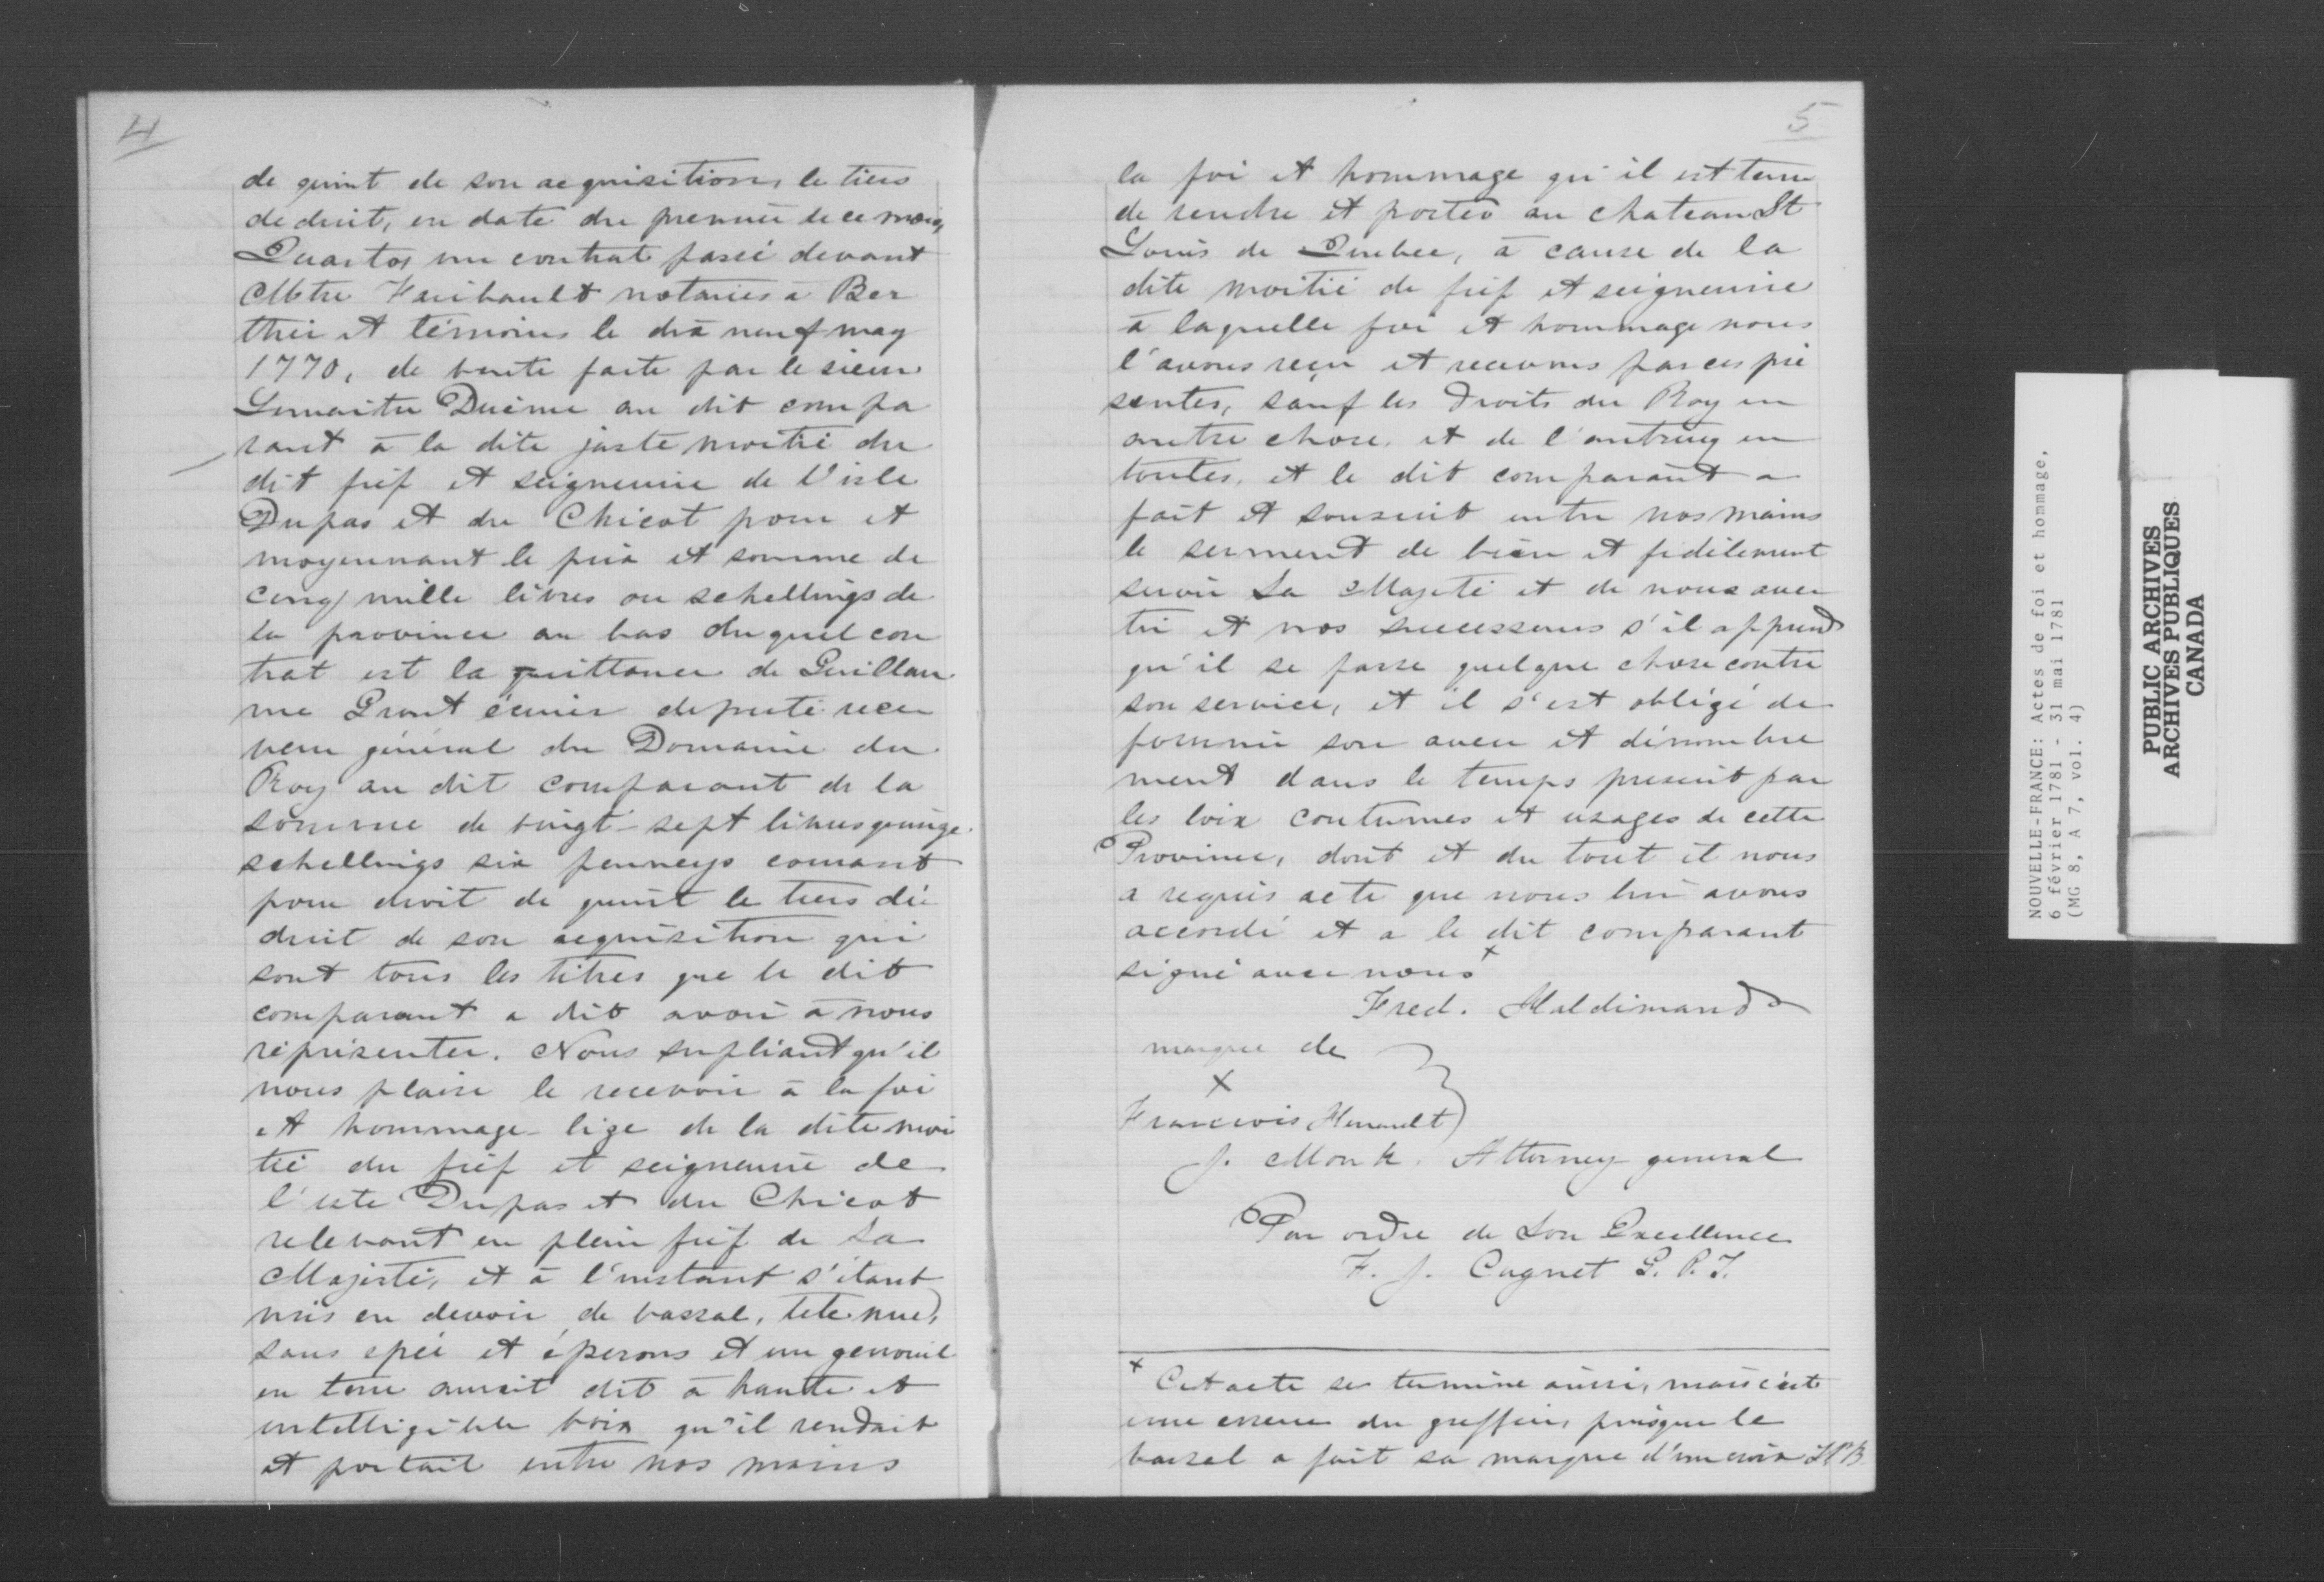 4
de quint de son acquisition, le tiers
deduit, en date du premier de ce mois,
Quarto, un contrat passé devant
Mtre Faribault notaires à Ber
thier et témoins le dix neuf may
1770, de vente faite par le sieur
Lemaitre Duème au dit compa
rant à la dite juste moitié du
dit fief et seigneurie de l'isle
Dupas et du Chicot pour et
moyennant le prix et somme de
cinq mille livres ou schellings de
la province au bas duquel con
trat est la quittance de Guillau
me Grant écuier deputé rece
veur général du Domaine du
Roy au dit comparant de la
somme de vingt-sept livres quinze
schellings six penneys courant
pour droit de quint le tiers dé
duit de son acquisition qui
sont tous les titres que le dit
comparant a dit avoir à nous
réprésenter. Nous supliant qu'il
nous plaise le recevoir à la foi
et hommage lige de la dite moi
tié du fief et seigneurie de
l'isle Dupas et du Chicot
relevant en plein fief de Sa
Majesté, et à l'instant s'étant
mis en devoir de vassal, tete nue,
sans epée et éperons et un genouil
en terre auroit dit à haute et
intelligible voix qu'il rendait
et portait entre nos mains
5
la foi et hommage qu'il est tenu
de rendre et porter au chateau St
Louis de Quebec, à cause de la
dite moitié de fief et seigneurie
à laquelle foi et hommage nous
l'avons reçu et recevons par ces pré
sentes, sauf les Droits du Roy en
autre chose, et de l'autruy en
toutes, et le dit comparant a
fait et souscrit entre nos mains
le serment de bien et fidèlement
servir Sa Majeté et de nous aver
tir et nos successeurs s'il apprend
qu'il se passe quelque chose contre
son service, et il s'est obligé de
fournir son aveu et dénombre
ment dans le temps prescrit par
les loix coutumes et usages de cette
Province, dont et du tout il nous
a requis acte que nous lui avons
accordé et a le dit comparant
signé avec nous x
Fred. Haldimand
marque de
X
Francois Henault
J. Monk. Attorney general
Par ordre de Son Excellence
F. J. Cugnet G. P. T.
x Cet acte se termine ainsi, mais c'est
une erreur du greffier, puisque le
vassal a fait sa marque d'une croix I.P.B.
NOUVELLE-FRANCE: Actes de foi et hommage,
6 février 1781 - 31 mai 1781
(MG 8, A 7, vol. 4)
PUBLIC ARCHIVES
ARCHIVES PUBLIQUES
CANADA